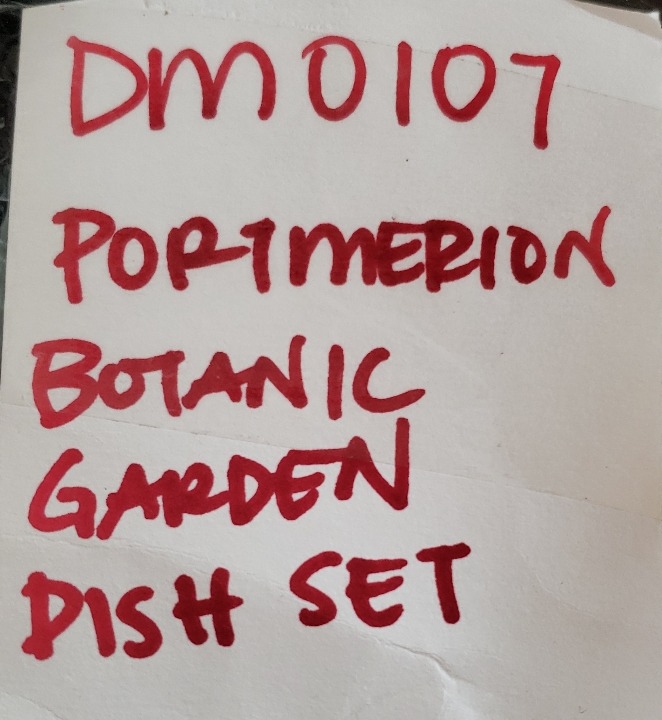 DM0107
PORTMERION
BOTANIC
GARDEN
DISH SET